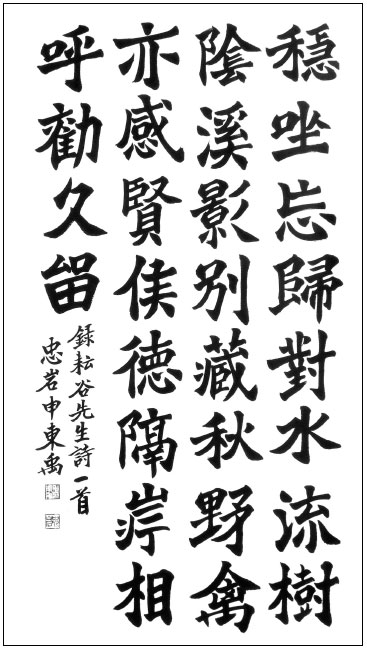 穩坐忘歸對水流樹
陰溪影別藏秋野禽
亦感賢侯德隔岸相
呼勸久留
錄耘谷先生詩一首
忠岩申東禹